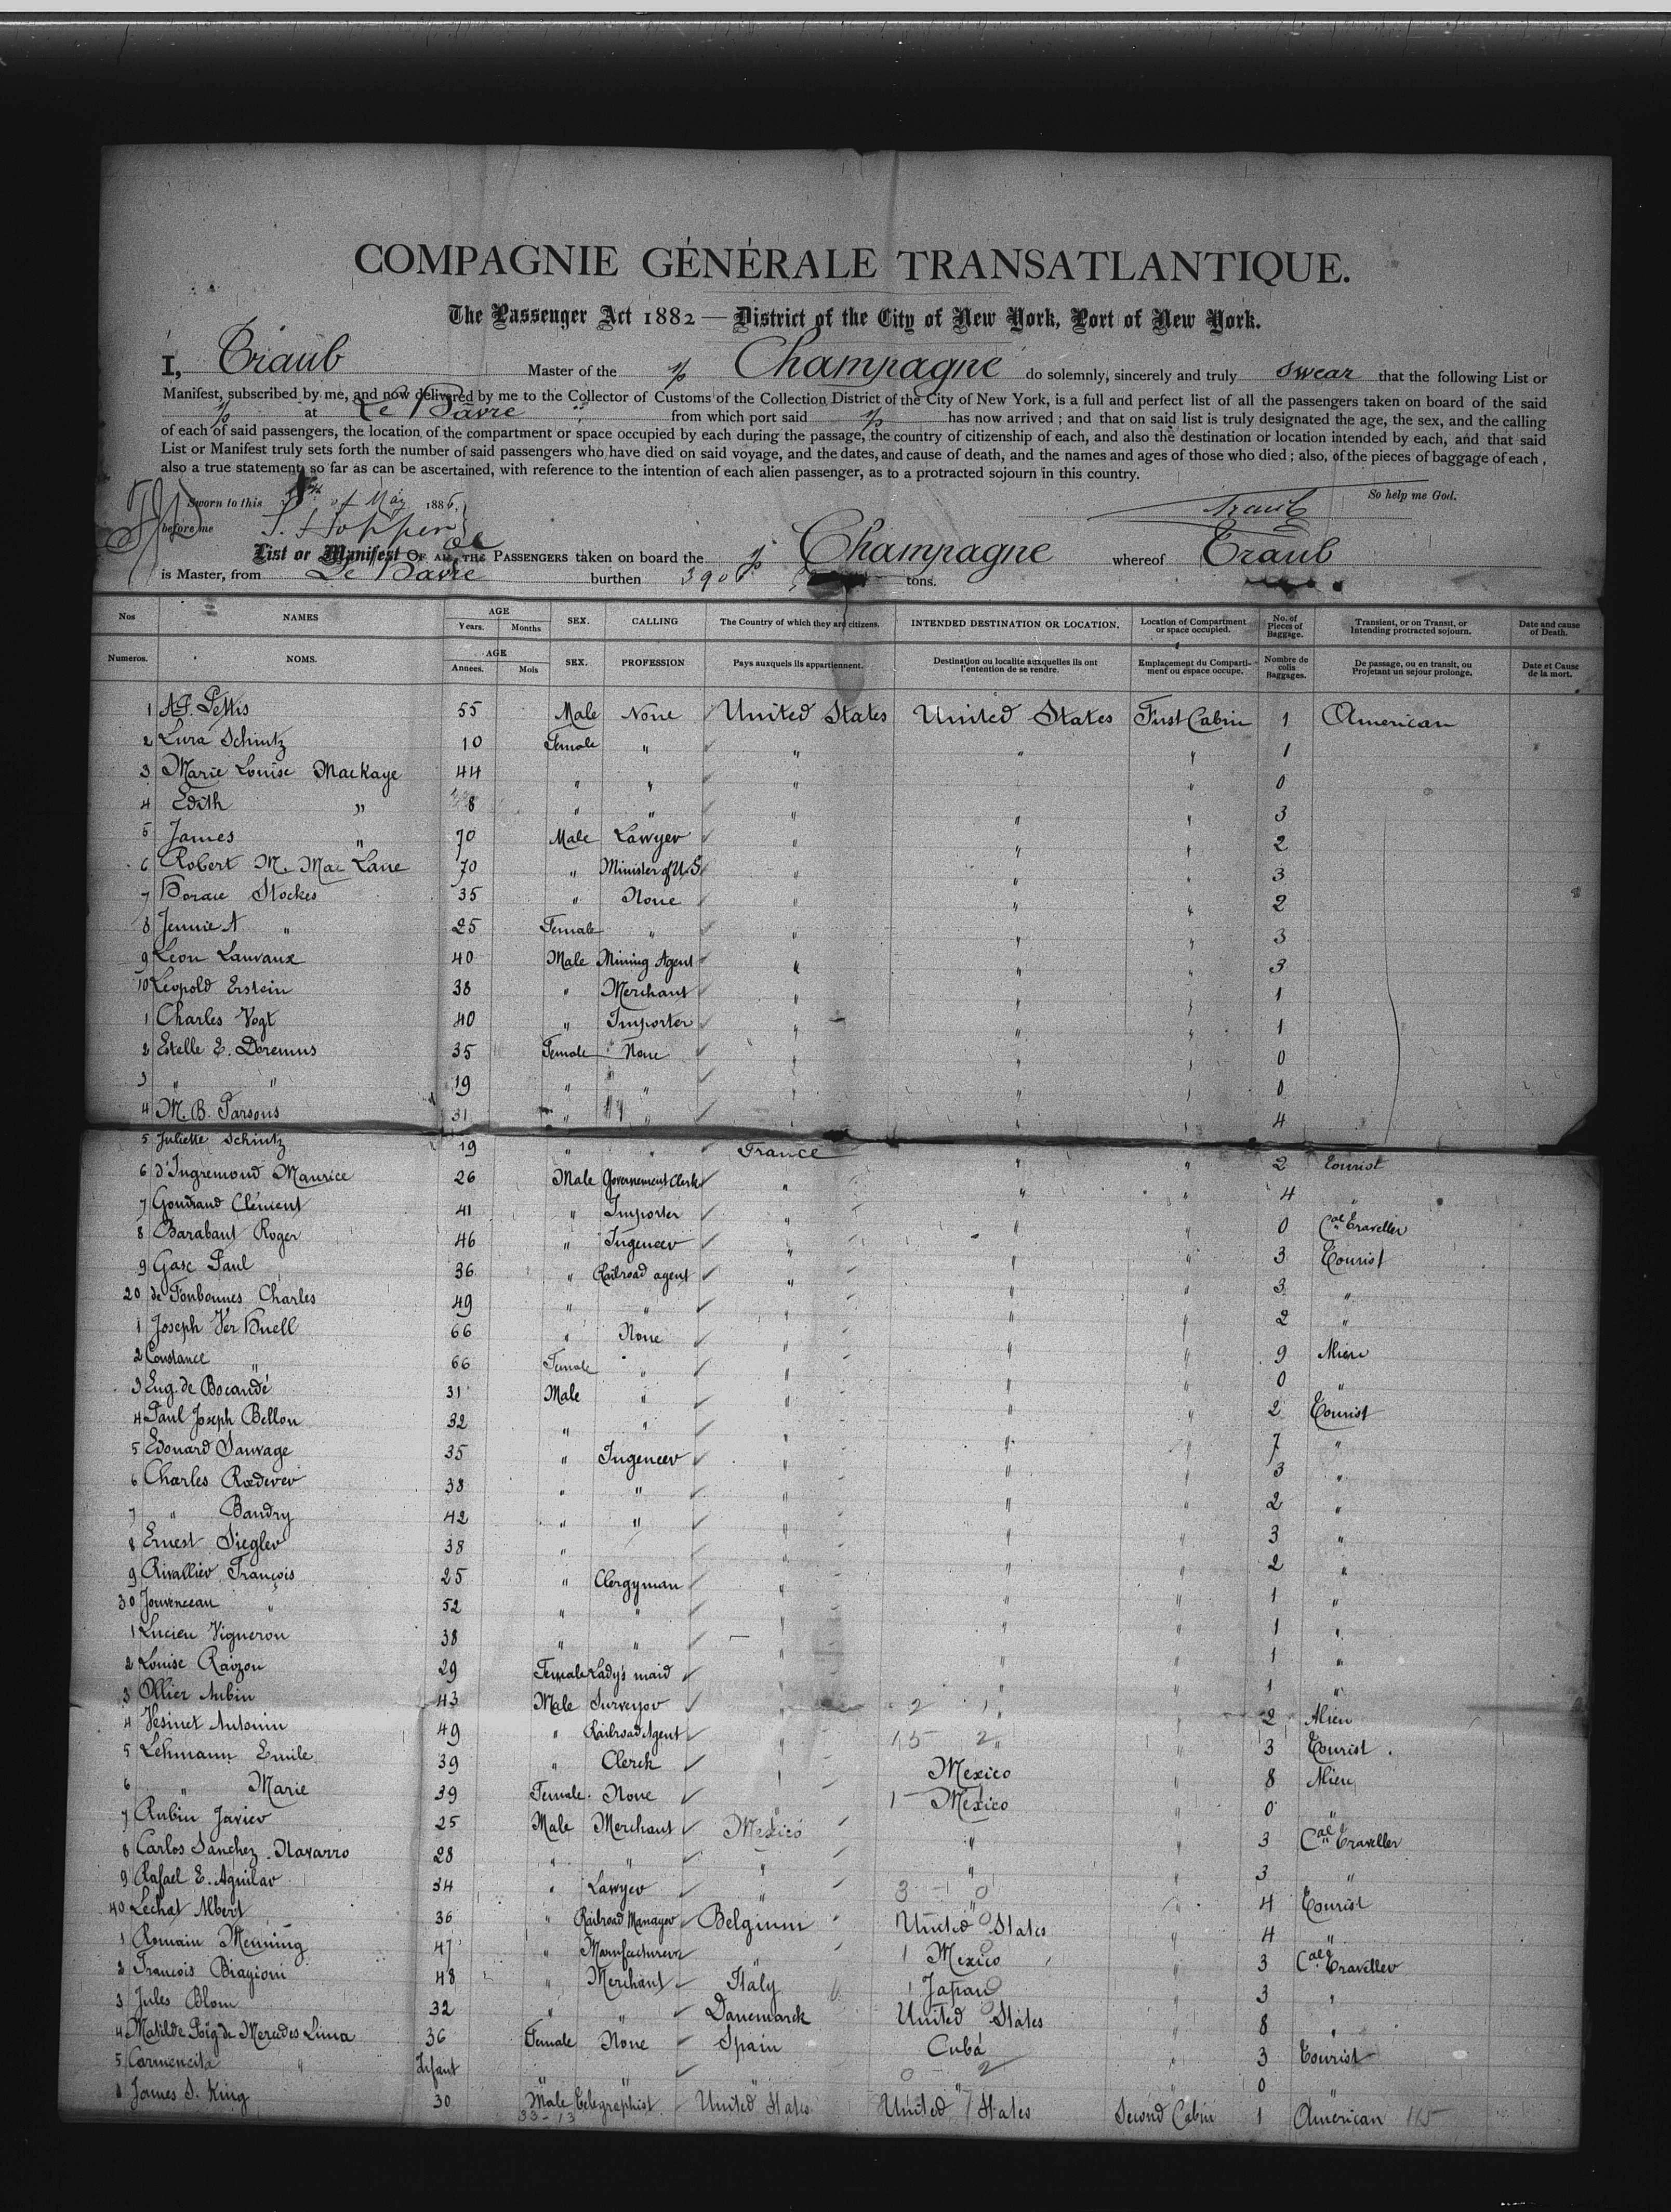 COMPAGNIE GÉNÉRALE TRANSATLANTIQUE.
The Passenger Act 1882 — District of the City of New York, Port of New York.
I, Traub Master of the s/s Champagne do solemnly, sincerely and truly swear that the following List or
Manifest, subscribed by me, and now delivered by me to the Collector of Customs of the Collection District of the City of New York, is a full and perfect list of all the passengers taken on board of the said
s/s at Le Havre from which port said s/s has now arrived ; and that on said list is truly designated the age, the sex, and the calling
of each of said passengers, the location of the compartment or space occupied by each during the passage, the country of citizenship of each, and also the destination or location intended by each, and that said
List or Manifest truly sets forth the number of said passengers who have died on said voyage, and the dates, and cause of death, and the names and ages of those who died ; also, of the pieces of baggage of each,
also a true statement, so far as can be ascertained, with reference to the intention of each alien passenger, as to a protracted sojourn in this country.
Sworn to this of May 1886, Traub So help me God.
before me
List or Manifest OF ALL THE PASSENGERS taken on board the s/s Champagne whereof Traub
is Master, from Le Havre burthen 3906 tons.
Nos NAMES AGE Years. Months SEX. CALLING The Country of which they are citizens. INTENDED DESTINATION OR LOCATION. Location of Compartment or space occupied. No. of Pieces of Baggage. Transient, or on Transit, or Intending protracted sojourn. Date and cause of Death.
Numeros. NOMS. AGE Annees. Mois SEX. PROFESSION Pays auxquels ils appartiennent. Destination ou localite auxquelles ils ont l'entention de se rendre. Emplacement du Compartiment ou espace occupe. Nombre de colis Baggages. De passage, ou en transit, ou Projetant un sejour prolonge. Date et Cause de la mort.
1 Pettis 55 Male None United States United States First Cabin 1 American
2 Lura Schintz 10 Female " " " " 1
3 Marie Louise MacKaye 44 " " " " 0
4 Edith " 8 " " " " " 3
5 James " 70 Male Lawyer " " " 2
6 Robert M. Mac Lane 70 " Minister of U.S " " " 3
7 Horace Stockes 35 " None " " " 2
8 Jennie A " 25 Female " " " " 3
9 Léon Lauvaux 40 Male Mining Agent " " " 3
10 Léopold Erstein 38 " Merchant " " " 1
1 Charles Vogt 40 " Importer " " " 1
2 Estelle E. Doremus 35 Female None " " " 0
3 " " 19 " " " " " 0
4 M. B. Parsons 31 " " " " " 4
5 Juliette Schintz 19 " " France " " 2 Tourist
6 d'Ingremond Maurice 26 Male Governement Clerk " " " 4 "
7 Goudrand Clément 41 " Importer " " " 0 Cal Traveller
8 Barabant Roger 46 " Ingeneer " " " 3 Tourist
9 Gasc Paul 36 " Railroad agent " " " 3 "
20 de Fonbonnes Charles 49 " " " " " 2 "
1 Joseph Ver Huell 66 " None " " " 9 Alien
2 Constance " 66 Female " " " " 0 "
3 Eug. de Bocandé 31 Male " " " " 2 Tourist
4 Paul Joseph Bellon 32 " " " " " 7 "
5 Edouard Sauvage 35 " Ingeneer " " " 3 "
6 Charles Rœderer 38 " " " " " 2 "
7 " Baudry 42 " " " " " 3 "
8 Ernest Siegler 38 " " " " " 2 "
9 Rivallier François 25 " Clergyman " " " 1 "
30 Jouvenceau " 52 " " " " " 1 "
1 Lucien Vigneron 38 " " " " " 1 "
2 Louise Raizon 29 Female Lady's maid " " " 1 "
3 Ollier Aubin 43 Male Surveyor " " " 2 Alien
4 Vesinet Antonin 49 " Railroad Agent " " " 3 Tourist
5 Lehmann Emile 39 " Clerck " Mexico " 8 Alien
6 " Marie 39 Female None " Mexico " 0 "
7 Rubin Javier 25 Male Merchant Mexico " " 3 Cal Traveller
8 Carlos Sanchez Navarro 28 " " " " " 3 "
9 Rafael E. Aguilar 34 " Lawyer " " " 4 Tourist
40 Lechat Albert 36 " Railroad Manager Belgium United States " 4 "
1 Romain Menning 47 " Manufacturer " Mexico " 3 Cal Traveller
2 François Biagioni 48 " Merchant Italy Japan " 3 "
3 Jules Blom 32 " " Danemarck United States " 8 "
4 Matilde Poïg de Mercedes Lima 36 Female None Spain Cuba " 3 Tourist
5 Carmencita " Infant " " " " " 0 "
6 James S. King 30 Male Telegraphist United States United States Second Cabin 1 American 115
33-13